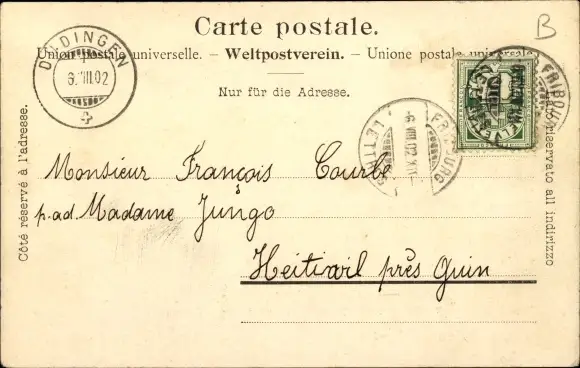 B
Carte postale.
Union postale universelle. – Weltpostverein. – Unione postale universale
Nur für die Adresse.
DÜDINGEN
6.VIII.02
FRIBOURG
LETTR
6 VIII.02 XII
FRIBOU
Côté réservé à l'adresse.
Lato riservato all indirizzo
Monsieur François Courbe
p.ad. Madame Jungo
Heitiwil près Guin